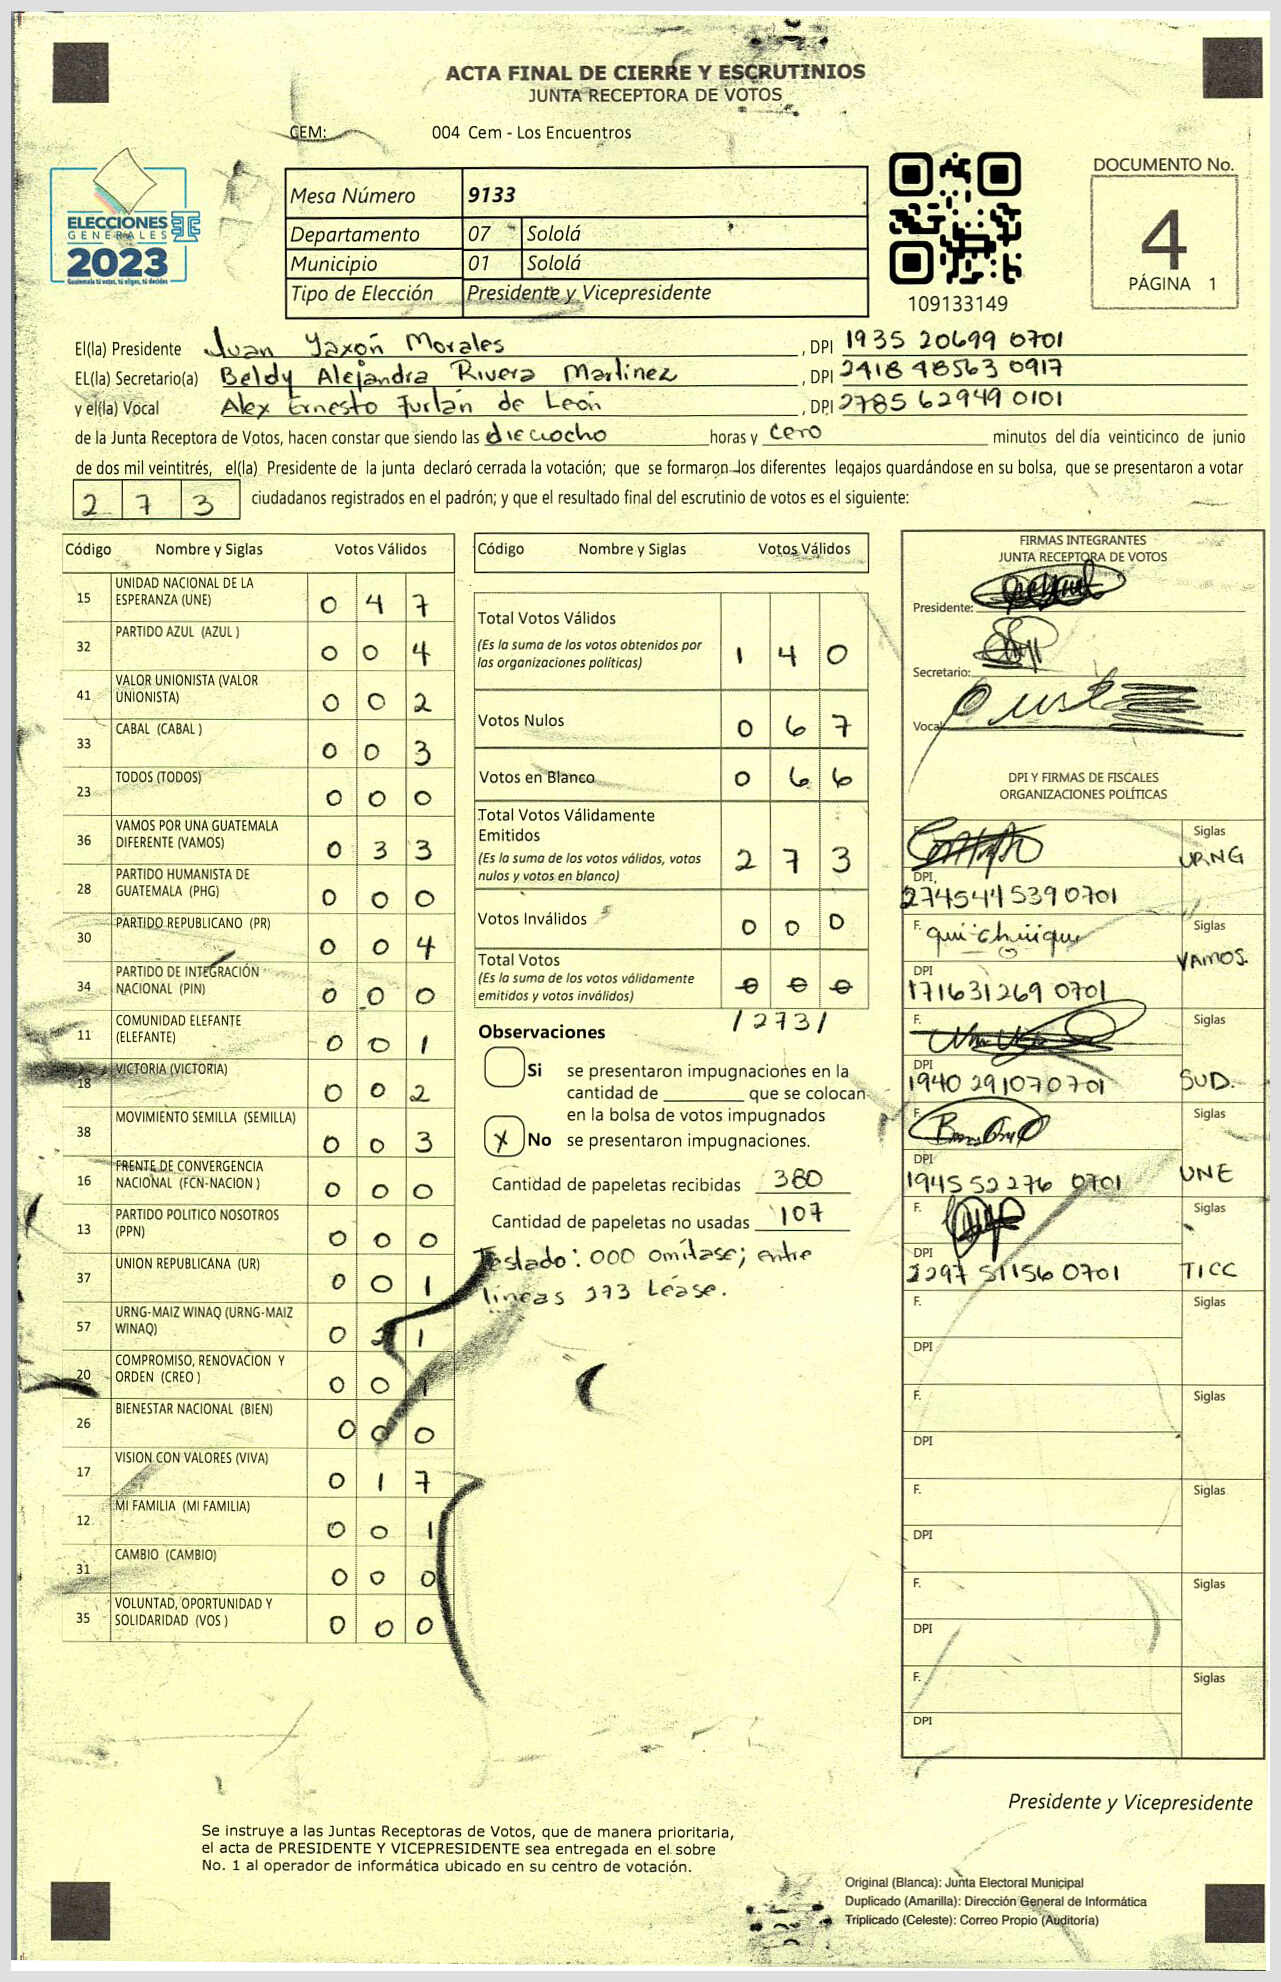 ACTA FINAL DE CIERRE Y ESCRUTINIOS
JUNTA RECEPTORA DE VOTOS
CEM: 004 Cem - Los Encuentros
ELECCIONES
GENERALES
2023
Guatemala tú votas, tú eliges, tú decides
Mesa Número 9133
Departamento 07 Sololá
Municipio 01 Sololá
Tipo de Elección Presidente y Vicepresidente
109133149
DOCUMENTO No.
4
PÁGINA 1
El(la) Presidente Juan Yaxón Morales, DPI 1935 20699 0701
EL(la) Secretario(a) Beldy Alejandra Rivera Martínez, DPI 2418 48563 0917
y el(la) Vocal Alex Ernesto Furlán de León, DPI 2785 62949 0101
de la Junta Receptora de Votos, hacen constar que siendo las dieciocho horas y cero minutos del día veinticinco de junio
de dos mil veintitrés, el(la) Presidente de la junta declaró cerrada la votación; que se formaron los diferentes legajos guardándose en su bolsa, que se presentaron a votar
2 7 3 ciudadanos registrados en el padrón; y que el resultado final del escrutinio de votos es el siguiente:
Código Nombre y Siglas Votos Válidos
15 UNIDAD NACIONAL DE LA ESPERANZA (UNE) 0 4 7
32 PARTIDO AZUL (AZUL ) 0 0 4
41 VALOR UNIONISTA (VALOR UNIONISTA) 0 0 2
33 CABAL (CABAL ) 0 0 3
23 TODOS (TODOS) 0 0 0
36 VAMOS POR UNA GUATEMALA DIFERENTE (VAMOS) 0 3 3
28 PARTIDO HUMANISTA DE GUATEMALA (PHG) 0 0 0
30 PARTIDO REPUBLICANO (PR) 0 0 4
34 PARTIDO DE INTEGRACIÓN NACIONAL (PIN) 0 0 0
11 COMUNIDAD ELEFANTE (ELEFANTE) 0 0 1
18 VICTORIA (VICTORIA) 0 0 2
38 MOVIMIENTO SEMILLA (SEMILLA) 0 0 3
16 FRENTE DE CONVERGENCIA NACIONAL (FCN-NACION ) 0 0 0
13 PARTIDO POLITICO NOSOTROS (PPN) 0 0 0
37 UNION REPUBLICANA (UR) 0 0 1
57 URNG-MAIZ WINAQ (URNG-MAIZ WINAQ) 0 2 1
20 COMPROMISO, RENOVACION Y ORDEN (CREO ) 0 0 1
26 BIENESTAR NACIONAL (BIEN) 0 0 0
17 VISION CON VALORES (VIVA) 0 1 7
12 MI FAMILIA (MI FAMILIA) 0 0 1
31 CAMBIO (CAMBIO) 0 0 0
35 VOLUNTAD, OPORTUNIDAD Y SOLIDARIDAD (VOS ) 0 0 0
Código Nombre y Siglas Votos Válidos
Total Votos Válidos 1 4 0
(Es la suma de los votos obtenidos por
las organizaciones políticas)
Votos Nulos 0 6 7
Votos en Blanco 0 6 6
Total Votos Válidamente
Emitidos 2 7 3
(Es la suma de los votos válidos, votos
nulos y votos en blanco)
Votos Inválidos 0 0 0
Total Votos 0 0 0
(Es la suma de los votos válidamente
emitidos y votos inválidos)
/273/
Observaciones
Si se presentaron impugnaciones en la
cantidad de ________ que se colocan
en la bolsa de votos impugnados
X No se presentaron impugnaciones.
Cantidad de papeletas recibidas 380
Cantidad de papeletas no usadas 107
Testado: 000 omítase; entre
líneas 273 Léase.
FIRMAS INTEGRANTES
JUNTA RECEPTORA DE VOTOS
Presidente:
Secretario:
Vocal
DPI Y FIRMAS DE FISCALES
ORGANIZACIONES POLÍTICAS
F. Siglas URNG
DPI, 2745441539 0701
F. Siglas VAMOS.
DPI 171631269 0701
F. Siglas SUD.
DPI 1940 29107 0701
F. Siglas UNE
DPI 1945 52 276 0701
F. Siglas TICC
DPI 2297 51156 0701
F. Siglas
DPI
F. Siglas
DPI
F. Siglas
DPI
F. Siglas
DPI
F. Siglas
DPI
Presidente y Vicepresidente
Se instruye a las Juntas Receptoras de Votos, que de manera prioritaria,
el acta de PRESIDENTE Y VICEPRESIDENTE sea entregada en el sobre
No. 1 al operador de informática ubicado en su centro de votación.
Original (Blanca): Junta Electoral Municipal
Duplicado (Amarilla): Dirección General de Informática
Triplicado (Celeste): Correo Propio (Auditoría)